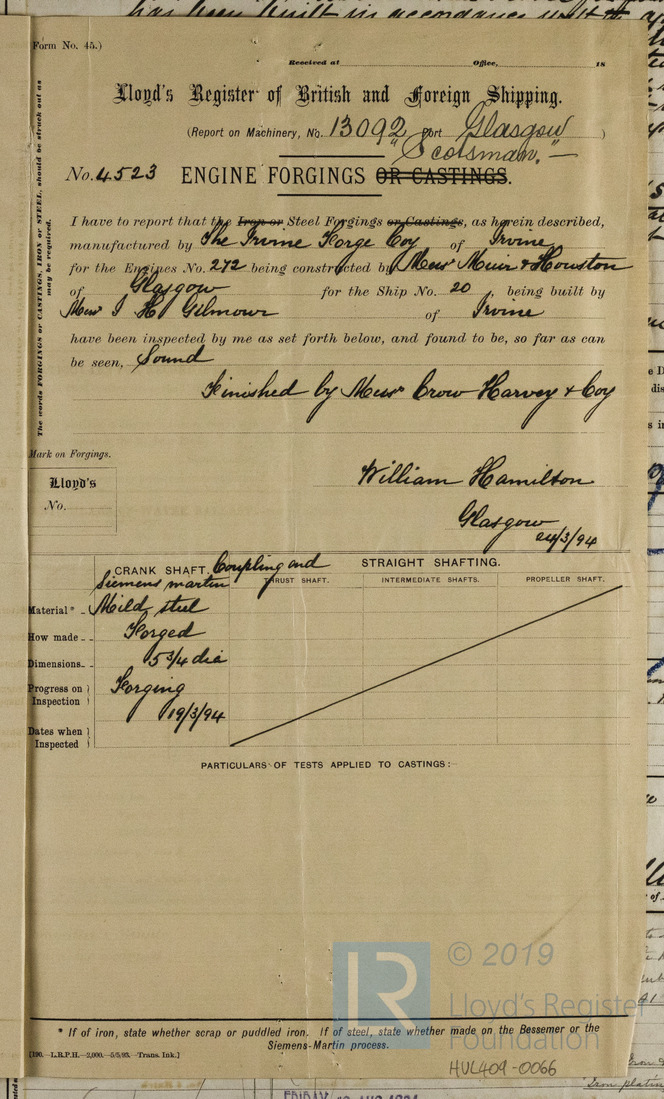 Form No. 45.)
Received at Office, 18
Lloyd's Register of British and Foreign Shipping.
(Report on Machinery, No. 13092 Port Glasgow )
"Scotsman."
No. 4523 ENGINE FORGINGS OR CASTINGS.
I have to report that the Iron or Steel Forgings or Castings, as herein described,
manufactured by The Irvine Forge Coy of Irvine
for the Engines No. 272 being constructed by Messrs Muir & Houston
of Glasgow for the Ship No. 20, being built by
Messrs J H Gilmour of Irvine
have been inspected by me as set forth below, and found to be, so far as can
be seen, Sound
Finished by Messrs Crow Harvey & Coy
The words FORGINGS or CASTINGS, IRON or STEEL, should be struck out as
may be required.
Mark on Forgings.
Lloyd's
No.
William Hamilton
Glasgow
24/3/94
CRANK SHAFT. Coupling and STRAIGHT SHAFTING.
Siemens martin THRUST SHAFT. INTERMEDIATE SHAFTS. PROPELLER SHAFT.
Material* Mild steel
How made Forged
Dimensions 5 3/4 dia
Progress on Inspection Forging
19/3/94
Dates when Inspected
PARTICULARS OF TESTS APPLIED TO CASTINGS:—
* If of iron, state whether scrap or puddled iron. If of steel, state whether made on the Bessemer or the
Siemens-Martin process.
[190.—L.R.P.H.—2,000.—5/5/93.—Trans. Ink.]
LR
© 2019
Lloyd's Register
Foundation
HUL409-0066